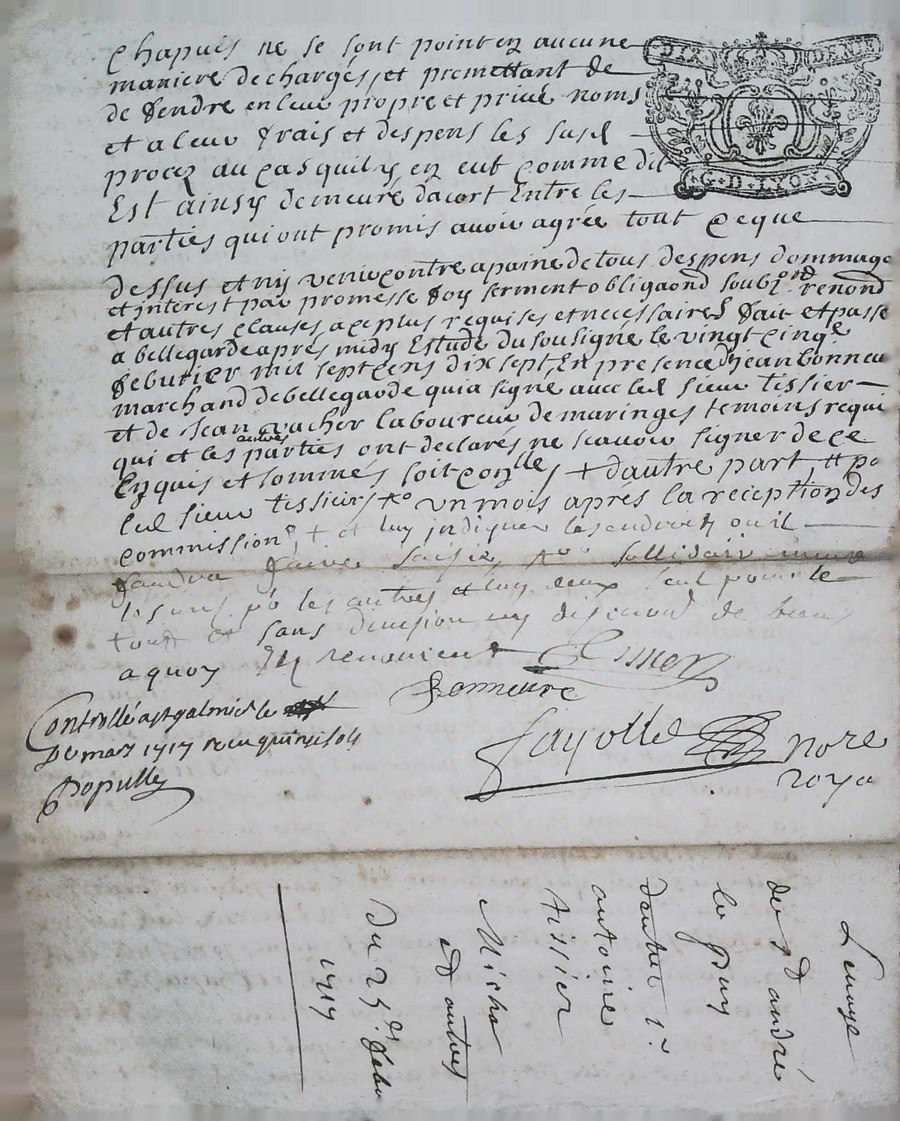 Chapuis ne se sont point en aucune
maniere dechargés, et promettant de
de fendre en leur propre et privé noms
et a leur frais et despens les susd
procez au cas quil y en eut comme dit
Est ainsy demeuré dacort Entre les
parties qui ont promis avoir agréé tout ceque
DIX DENIE
G. D. LYON
dessus et ny venir contre apaine de tous despens dommage
et interest par promesse foy serment obligaond soub
et autres clauses ace plus requises et necessaires fait et passé
a bellegarde aprés midy Estude du soubsigné le vingt cinq
feburier mil sept cens dix sept, En presence de jean bonneu
marchand de bellegarde qui a signé avec led sieur tissier
et de Jean vacher laboureur de maringes temoins requi
autres
qui et les parties ont declarés ne scavoir signer de ce
Enquis et sommés soit con lle + dautre part, tt po
led sieur tissier, ro un mois apres la reception des
commissions + et luy indiquer les endroits ou il
faudra faire saisie, ro sollidairement
les uns po les autres et luy deux seul pour le
tout et sans division ny discution de biens
a quoy Ils renoncient
Bonneure
fayolle nore
roya
Controllé a st galmier le
De mars 1717 receu quinze sols
Populle
de Sr andré
le guy
dautre
antoine
tissier
Micha
& autres
Du 25e febu
1717